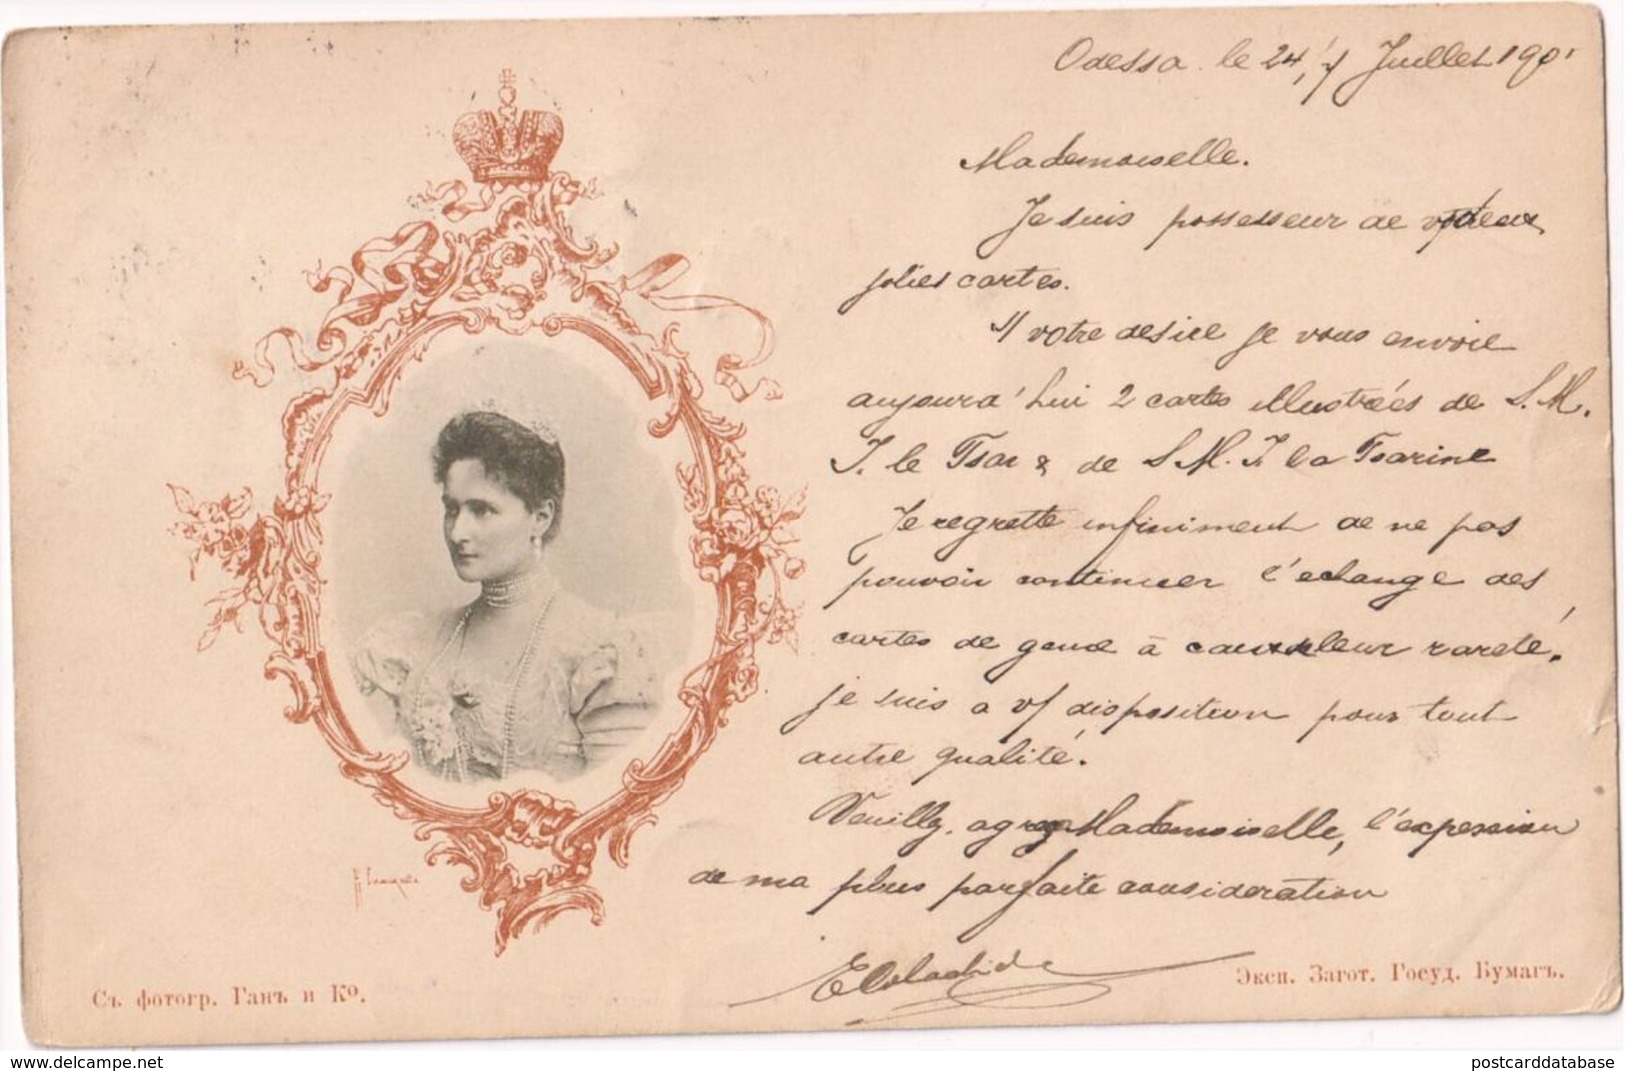 Odessa. le 24/7 Juillet 1901
Mademoiselle.
Je suis possesseur de vos deux
jolies cartes.
A votre desire je vous envoie
aujourd'hui 2 cartes illustrées de S. M.
I. le Tsar & de S M. I. la Tsarine
Je regrette infiniment de ne pas
pouvoir continuer l'echange des
cartes de genre à cause leur rareté,
je suis a v/ disposition pour tout
autre qualité.
Veuillez, agreez Mademoiselle, l'expression
de ma plus parfaite consideration
Съ фотогр. Ганъ и Ко.
Эксп. Загот. Госуд. Бумагъ.
delcampe.net
postcarddatabase